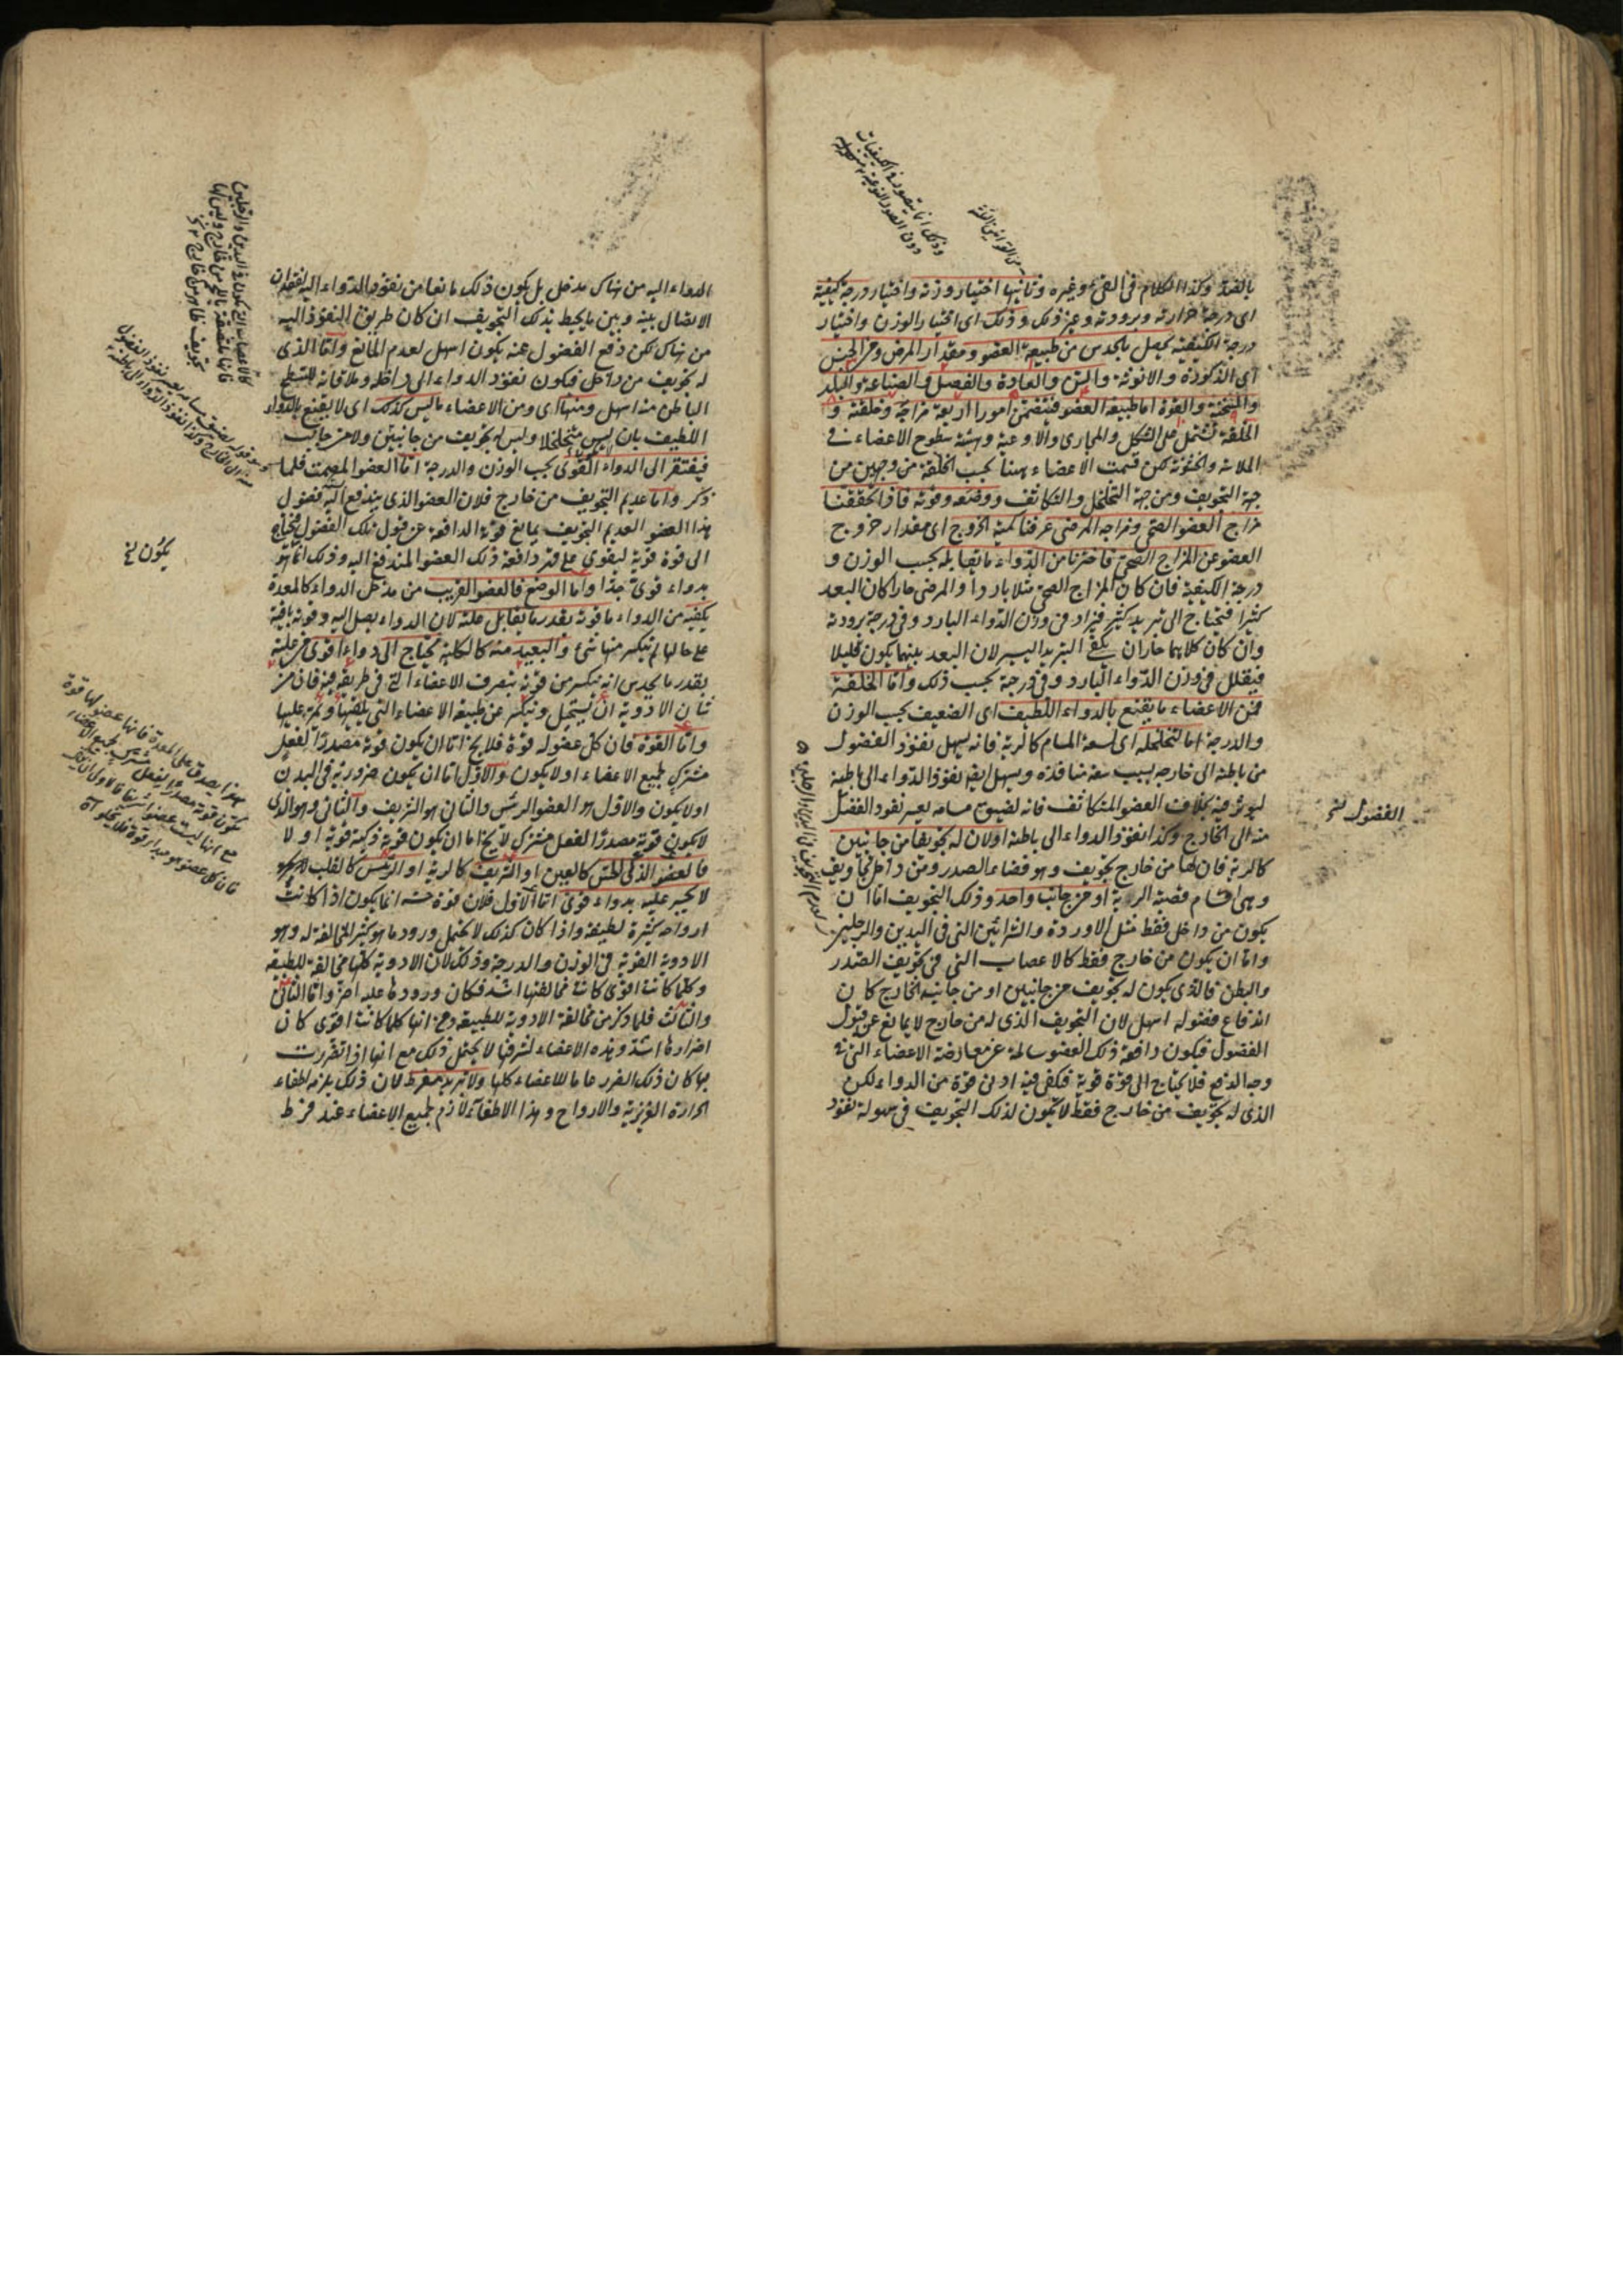 بالضد وكذا الكلام فى القئ وغيره وثانيها اختيار وزنه واختيار درجة كيفيته
اى درجة حرارته وبرودته وغير ذلك وذلك اى اختيار الوزن واختيار
درجة الكيفية يحصل بالحدس من طبيعة العضو ومقدار المرض ومن الجنس
اى الذكورة والانوثة والسن والعادة والفصل والصناعة والبلد
والسحنة والقوة اما طبيعة العضو فيتضمن امورا اربعة مزاجه وخلقته و
الخلقة تشتمل على الشكل والمجارى والاوعية وهيئة سطوح الاعضاء فى
الملاسة والخشونة لكن قسمت الاعضاء ههنا بحسب الخلقة من وجهين من
جهة التجويف ومن جهة التخلخل والتكاثف ووضعه وقوته فاذا تحققنا
مزاج العضو الصحى ومزاجه المرضى عرفنا كمية الخروج اى مقدار خروج
العضو عن المزاج الصحى فاخترنا من الدواء ما يقابله بحسب الوزن و
درجة الكيفية فان كان المزاج الصحى مثلا باردا والمرضى حارا كان البعد
كثيرا فيحتاج الى تبريد كثير فيزاد فى وزن الدواء البارد وفى درجة برودته
وان كان كلاهما حاران يكفى التبريد اليسير لان البعد بينهما يكون قليلا
فيقلل فى وزن الدواء البارد وفى درجة بحسب ذلك واما الخلقة
فمن الاعضاء ما يقنع بالدواء اللطيف اى الضعيف بحسب الوزن
والدرجة اما لتخلخله اى لسعة المسام كالرية فانه يسهل نفوذ الفضول
من باطنه الى خارجه بسبب سعة منافذه ويسهل ايضا نفوذ الدواء الى باطنه
ليؤثر فيه بخلاف العضو المتكاثف فانه لضيق مسامه يعسر نفوذ الفضل
منه الى الخارج وكذا نفوذ الدواء الى باطنه اولان له تجويفا من جانبين
كالرية فان لها من خارج تجويف وهو فضاء الصدر ومن داخل تجاويف
وهى اقسام قصبة الرية او من جانب واحد وذلك التجويف اما ان
يكون من داخل فقط مثل الاوردة والشرائين التى فى اليدين والرجلين
واما ان يكون من خارج فقط كالاعصاب التى فى تجويف الصدر
والبطن فالذى يكون له تجويف من جانبين او من جانبه الخارج كان
اندفاع فضوله اسهل لان التجويف الذى له من خارج لا يمانع عن قبول
الفضول فيكون دافعة ذلك العضو سالمة عن معارضة الاعضاء التى فى
وجه الدفع فلا يحتاج الى قوة قوية فكفى فيه ادنى قوة من الدواء لكن
الذى له تجويف من خارج فقط لا يكون لذلك التجويف فى سهولة نفوذ
الفضول نخ
الدواء اليه من هناك مدخل بل يكون ذلك مانعا من نفوذ الدواء اليه لفقدان
الاتصال بينه وبين ما يحيط بذلك التجويف ان كان طريق النفوذ اليه
من هناك لكن دفع الفضول عنه يكون اسهل لعدم المانع واما الذى
له تجويف من داخل فيكون نفوذ الدواء الى داخله وملاقاته للسطح
الباطن منه اسهل ومنها اى ومن الاعضاء ما ليس كذلك اى لا يقنع بالدواء
اللطيف بان ليس متخلخلا وليس له تجويف من جانبين ولا من جانب
فيفتقر الى الدواء القوى بحسب الوزن والدرجة اما العضو المصمت فلما
ذكر واما عديم التجويف من خارج فلان العضو الذى يندفع اليه فضول
هذا العضو العديم التجويف يمانع قوته الدافعة عن قبول تلك الفضول فيحتاج
الى قوة قوية ليقوى على قهر دافعة ذلك العضو المندفع اليه وذلك انما هو
بدواء قوى جدا واما الوضع فالعضو القريب من مدخل الدواء كالمعدة
يكفيه من الدواء ما قوته بقدر ما يقابل علته لان الدواء يصل اليه وقوته باقية
على حالها لم ينكسر منها شئ والبعيد منه كالكلية يحتاج الى دواء اقوى من علته
بقدر ما يحدس انه ينكسر من قوته بتصرف الاعضاء التى فى طريقه فيه فان من
شان الادوية ان تستحيل وتنكسر عن طبيعة الاعضاء التى تلقيها وتمر عليها
واما القوة فان كل عضو له قوة فلا يخ اما ان يكون قوته مصدرا لفعل
مشترك لجميع الاعضاء او لا يكون والاول اما ان يكون ضرورية فى البدن
اولا يكون والاول هو العضو الرئيس والثانى هو الشريف والثانى وهو الذى
لا يكون قوته مصدرا لفعل مشترك لا يخ اما ان يكون قوته ذكية قوية او لا
فالعضو الذكى الحس كالعين او الشريف كالرية او الرئيس كالقلب
لا يجسر عليه بدواء قوى اما الاول فلان قوة حسه انما يكون اذا كانت
ارواحه كثيرة لطيفة واذا كان كذلك لا يحتمل ورود ما هو كثير المخالفة له وهو
الادوية القوية فى الوزن والدرجة وذلك لان الادوية كلها مخالفة للطبيعة
وكلما كانت اقوى كانت مخالفتها اشد فكان ورودها عليه اضر واما الثانى
والثالث فلما ذكر من مخالفة الادوية للطبيعة ومن انها كلما كانت اقوى كان
اضرارها اشد وهذه الاعضاء لشرفها لا يحتمل ذلك مع انها اذا تضررت
بها كان ذلك الضرر عاما للاعضاء كلها ولا تبريد بمفرط لان ذلك يلزمه اطفاء
الحرارة الغريزية والارواح وهذا الاطفاء لازم لجميع الاعضاء عند فرط
يكون نخ